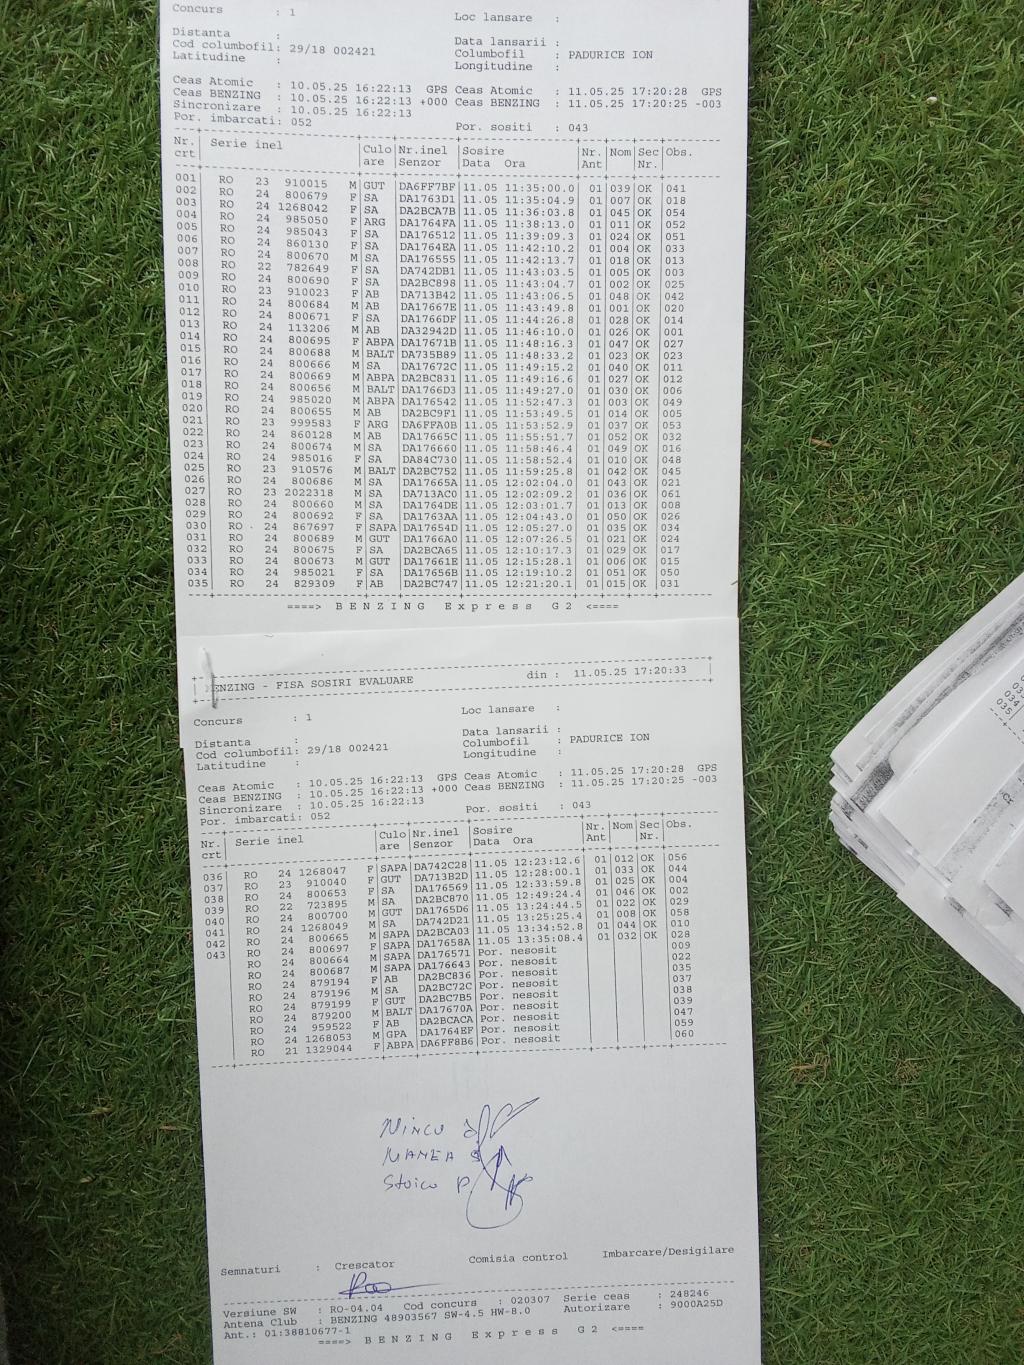 Concurs : 1 Loc lansare :
Distanta : Data lansarii :
Cod columbofil: 29/18 002421 Columbofil : PADURICE ION
Latitudine : Longitudine :
Ceas Atomic : 10.05.25 16:22:13 GPS Ceas Atomic : 11.05.25 17:20:28 GPS
Ceas BENZING : 10.05.25 16:22:13 +000 Ceas BENZING : 11.05.25 17:20:25 -003
Sincronizare : 10.05.25 16:22:13
Por. imbarcati: 052 Por. sositi : 043
Nr. Serie inel Culo Nr.inel Sosire Nr. Nom Sec Obs.
crt are Senzor Data Ora Ant Nr.
001 RO 23 910015 M GUT DA6FF7BF 11.05 11:35:00.0 01 039 OK 041
002 RO 24 800679 F SA DA1763D1 11.05 11:35:04.9 01 007 OK 018
003 RO 24 1268042 F SA DA2BCA7B 11.05 11:36:03.8 01 045 OK 054
004 RO 24 985050 F ARG DA1764FA 11.05 11:38:13.0 01 011 OK 052
005 RO 24 985043 F SA DA176512 11.05 11:39:09.3 01 024 OK 051
006 RO 24 860130 F SA DA1764EA 11.05 11:42:10.2 01 004 OK 033
007 RO 24 800670 M SA DA176555 11.05 11:42:13.7 01 018 OK 013
008 RO 22 782649 F SA DA742DB1 11.05 11:43:03.5 01 005 OK 003
009 RO 24 800690 F SA DA2BC898 11.05 11:43:04.7 01 002 OK 025
010 RO 23 910023 F AB DA713B42 11.05 11:43:06.5 01 048 OK 042
011 RO 24 800684 M AB DA17667E 11.05 11:43:49.8 01 001 OK 020
012 RO 24 800671 F SA DA1766DF 11.05 11:44:26.8 01 028 OK 014
013 RO 24 113206 M AB DA32942D 11.05 11:46:10.0 01 026 OK 001
014 RO 24 800695 F ABPA DA17671B 11.05 11:48:16.3 01 047 OK 027
015 RO 24 800688 M BALT DA735B89 11.05 11:48:33.2 01 023 OK 023
016 RO 24 800666 M SA DA17672C 11.05 11:49:15.2 01 040 OK 011
017 RO 24 800669 M ABPA DA2BC831 11.05 11:49:16.6 01 027 OK 012
018 RO 24 800656 M BALT DA1766D3 11.05 11:49:27.0 01 030 OK 006
019 RO 24 985020 M ABPA DA176542 11.05 11:52:47.3 01 003 OK 049
020 RO 24 800655 M AB DA2BC9F1 11.05 11:53:49.5 01 014 OK 005
021 RO 23 999583 F ARG DA6FFA0B 11.05 11:53:52.9 01 037 OK 053
022 RO 24 860128 M AB DA17665C 11.05 11:55:51.7 01 052 OK 032
023 RO 24 800674 M SA DA176660 11.05 11:58:46.4 01 049 OK 016
024 RO 24 985016 F SA DA84C730 11.05 11:58:52.4 01 010 OK 048
025 RO 23 910576 M BALT DA2BC752 11.05 11:59:25.8 01 042 OK 045
026 RO 24 800686 M SA DA17665A 11.05 12:02:04.0 01 043 OK 021
027 RO 23 2022318 M SA DA713AC0 11.05 12:02:09.2 01 036 OK 061
028 RO 24 800660 M SA DA1764DE 11.05 12:03:01.7 01 013 OK 008
029 RO 24 800692 F SA DA1763AA 11.05 12:04:43.0 01 050 OK 026
030 RO 24 867697 F SAPA DA17654D 11.05 12:05:27.0 01 035 OK 034
031 RO 24 800689 M GUT DA1766A0 11.05 12:07:26.5 01 021 OK 024
032 RO 24 800675 F SA DA2BCA65 11.05 12:10:17.3 01 029 OK 017
033 RO 24 800673 M GUT DA17661E 11.05 12:15:28.1 01 006 OK 015
034 RO 24 985021 F SA DA17656B 11.05 12:19:10.2 01 051 OK 050
035 RO 24 829309 F AB DA2BC747 11.05 12:21:20.1 01 015 OK 031
====> B E N Z I N G E x p r e s s G 2 <====
BENZING - FISA SOSIRI EVALUARE din : 11.05.25 17:20:33
Concurs : 1 Loc lansare :
Distanta : Data lansarii :
Cod columbofil: 29/18 002421 Columbofil : PADURICE ION
Latitudine : Longitudine :
Ceas Atomic : 10.05.25 16:22:13 GPS Ceas Atomic : 11.05.25 17:20:28 GPS
Ceas BENZING : 10.05.25 16:22:13 +000 Ceas BENZING : 11.05.25 17:20:25 -003
Sincronizare : 10.05.25 16:22:13
Por. imbarcati: 052 Por. sositi : 043
Nr. Serie inel Culo Nr.inel Sosire Nr. Nom Sec Obs.
crt are Senzor Data Ora Ant Nr.
036 RO 24 1268047 F SAPA DA742C28 11.05 12:23:12.6 01 012 OK 056
037 RO 23 910040 F GUT DA713B2D 11.05 12:28:00.1 01 033 OK 044
038 RO 24 800653 F SA DA176569 11.05 12:33:59.8 01 025 OK 004
039 RO 22 723895 M SA DA2BC870 11.05 12:49:24.4 01 046 OK 002
040 RO 24 800700 M GUT DA1765D6 11.05 13:24:44.5 01 022 OK 029
041 RO 24 1268049 M SA DA742D21 11.05 13:25:25.4 01 008 OK 058
042 RO 24 800665 M SAPA DA2BCA03 11.05 13:34:52.8 01 044 OK 010
043 RO 24 800697 F SAPA DA17658A 11.05 13:35:08.4 01 032 OK 028
RO 24 800664 M SAPA DA176571 Por. nesosit 009
RO 24 800687 M SAPA DA176643 Por. nesosit 022
RO 24 879194 F AB DA2BC836 Por. nesosit 035
RO 24 879196 M SA DA2BC72C Por. nesosit 037
RO 24 879199 F GUT DA2BC7B5 Por. nesosit 038
RO 24 879200 M BALT DA17670A Por. nesosit 039
RO 24 959522 F AB DA2BCACA Por. nesosit 047
RO 24 1268053 M GPA DA1764EF Por. nesosit 059
RO 21 1329044 F ABPA DA6FF8B6 Por. nesosit 060
NINCU
MANEA S
Stoica P
Semnaturi : Crescator Comisia control Imbarcare/Desigilare
Versiune SW : RO-04.04 Cod concurs : 020307 Serie ceas : 248246
Antena Club : BENZING 48903567 SW-4.5 HW-8.0 Autorizare : 9000A25D
Ant.: 01:38810677-1
====> B E N Z I N G E x p r e s s G 2 <====
034
035